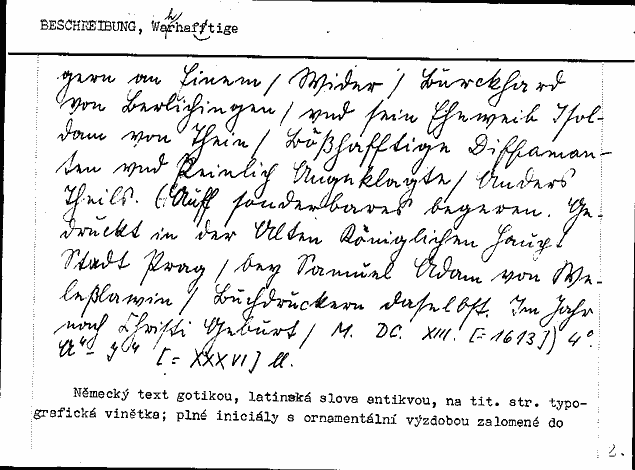 BESCHREIBUNG, Warhafftige
h
gern an Einem / Wider / Burckhard
von Berlichingen / vnd sein Eheweib Isol-
dam von Thein / Bößhafftige Diffaman-
ten vnd Peinlich Angeklagte / Anders
Theils. (: Auff sonderbares begeren. Ge-
druckt in der Alten Königlichen Haupt
Stadt Prag / bey Samuel Adam von We-
leßlawin / Buchdruckern daselbst. Im Jahr
nach Christi Geburt / M. DC. XIII. [= 1613]) 4°.
[= XXXVI] ll.
Německý text gotikou, latinská slova antikvou, na tit. str. typo-
grafická vinětka; plné iniciály s ornamentální výzdobou zalomené do
2.